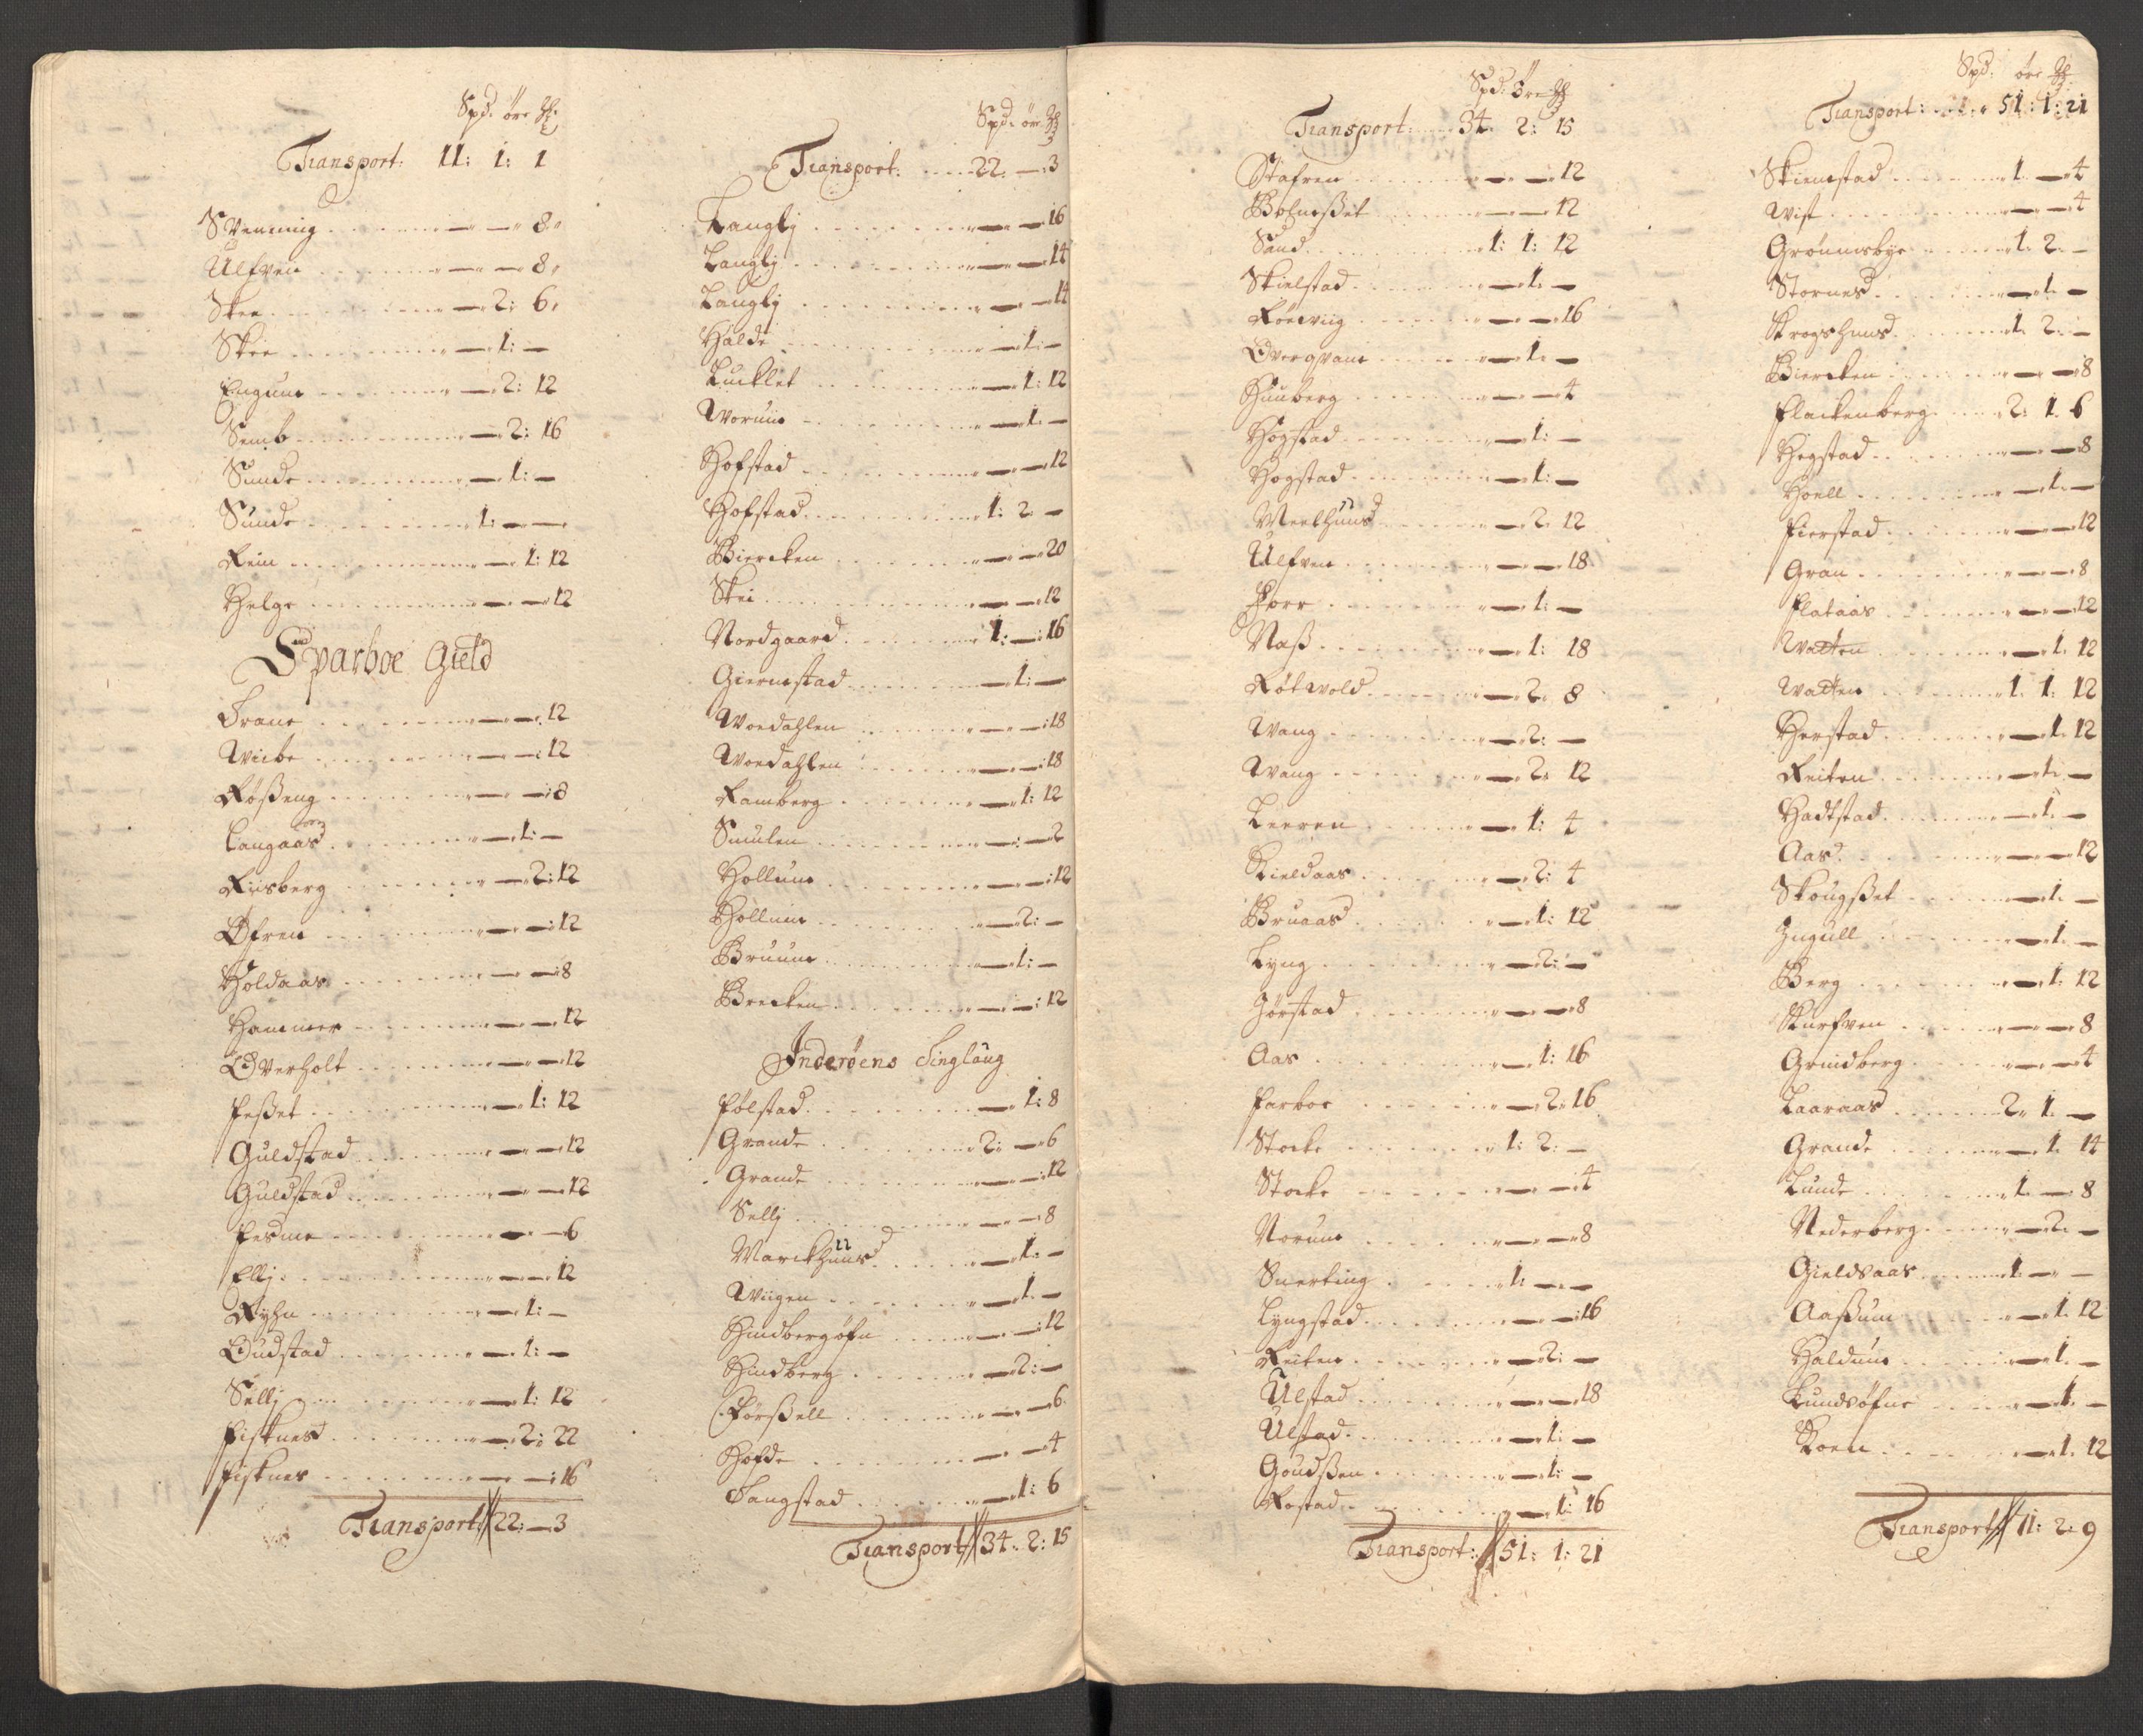 Spd. öre
Transport: 11: 1: 1
Svenning — — 8
Ulfven — — 8
Skee — 2: 6
Skee — 1: —
Engum — 2: 12
Semb — 2: 16
Sunde — 1: —
Sunde 1: — —
Rein — 1: 12
Helge — — 12
Sparboe Gield
Trane — — 12
Wiibe — — 12
Rößeng — — 8
Langaas — 1: —
Riisberg — 2: 12
Øfren — — 12
Holdaas — — 8
Hammer — — 12
Overholt — — 12
Feßet — 1: 12
Guldstad — — 12
Guldstad — — 12
Fesme — — 6
Ellj — — 12
Ryhn — 1: —
Oudstad — 1: —
Sellj — 1: 12
Fisknes — 2: 22
Fisknes — — 16
Transport 22: — 3
Spd. öre
Transport: 22: — 3
Langlj — — 16
Langlj — — 14
Langlj — — 14
Halde — 1: —
Lucklet — 1: 12
Worum — 1: —
Hofstad — — 12
Hofstad 1: 2: —
Biercken — — 20
Skei — — 12
Nordgaard 1: — 16
Giermstad — 1: —
Woedahlen — — 18
Woedahlen — — 18
Ramberg — 1: 12
Smulen — — 2
Hollum — — 12
Hollum — 2: —
Bruum — 1: —
Brecken — — 12
Inderöens Tinglaug
Følstad — 1: 8
Grande 2: — 6
Grande — — 12
Sellj — — 8
Marckhuus — 1: —
Wiigen — 1: —
Hindbergøfn — — 12
Hindberg — 2: —
Korßell — — 6
Hofde — — 4
Tangstad — 1: 6
Transport 34: 2: 15
Spd. öre
Transport: 34: 2: 15
Stafren — — 12
Bolneßet — — 12
Sand 1: 1: 12
Skielstad — 1: —
Röeswiig — — 16
Overqvam — 1: —
Huuberg — — 4
Hogstad — 1: —
Hogstad — 1: —
Meelhuus — 2: 12
Ulfven — — 18
Porr — 1: —
Naß — 1: 18
Røtwold — 2: 8
Wang — 2: —
Wang — 2: 12
Leeren — 1: 4
Kieldaas — 2: 4
Bruaas — 1: 12
Lyng — 2: —
Jörstad — — 8
Aas — 1: 16
Farboe — 2: 16
Stocke 1: 2: —
Stocke — — 4
Norum — — 8
Snerting 1: — —
Lyngstad — — 16
Reiten — 2: —
Ulstad — — 18
Ulstad — 1: —
Goudßen — 1: —
Rostad — 1: 16
Transport: 51: 1: 21
Spd. öre
Transport: 51: 1: 21
Skiemstad 1: — 4
Wist — — 4
Grönnesbye 1: 2: —
Stornes — 1: —
Krogshuus 1: 2: —
Biercken — — 8
Flackenberg 2: 1: 6
Hegstad — — 8
Hoell — 1: —
Fierstad — — 12
Gran — — 8
Flataas — — 12
Watten — 1: 12
Watten 1: 1: 12
Herstad — 1: 12
Reiten — 1: —
Hadtstad — 1: —
Aas — — 12
Skougßet — 1: —
Ingull — 1: —
Berg — 1: 12
Skurfven — — 8
Grindberg — — 4
Laaraas 2: 1: —
Grande — 1: 14
Lunde 1: — 8
Nederberg — 2: —
Gieldsaas 1: — —
Aaßum — 1: 12
Haldum — 1: —
Lundsøfne — 1: —
Koen — 1: 12
Transport 71: 2: 9